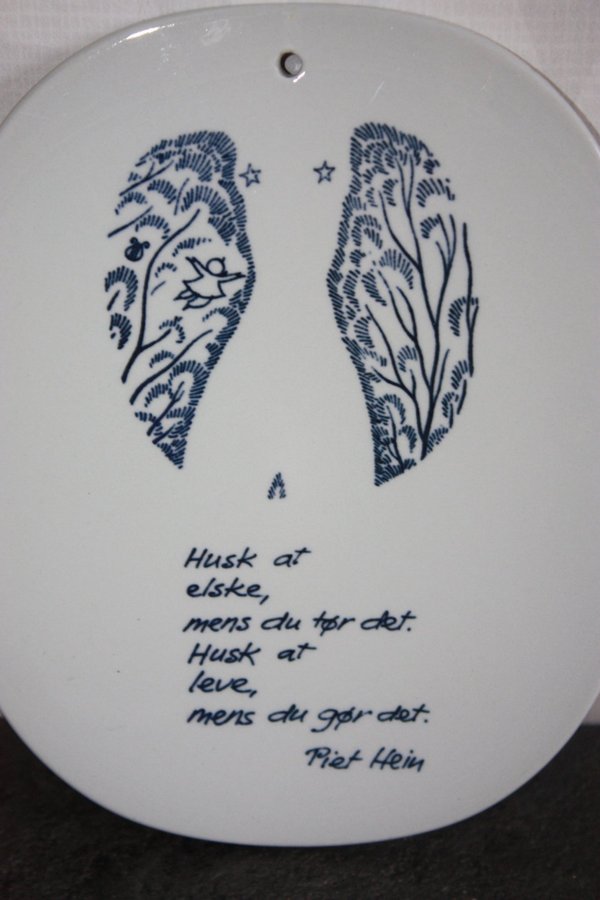 Husk at
elske,
mens du tør det.
Husk at
leve,
mens du gør det.
Piet Hein